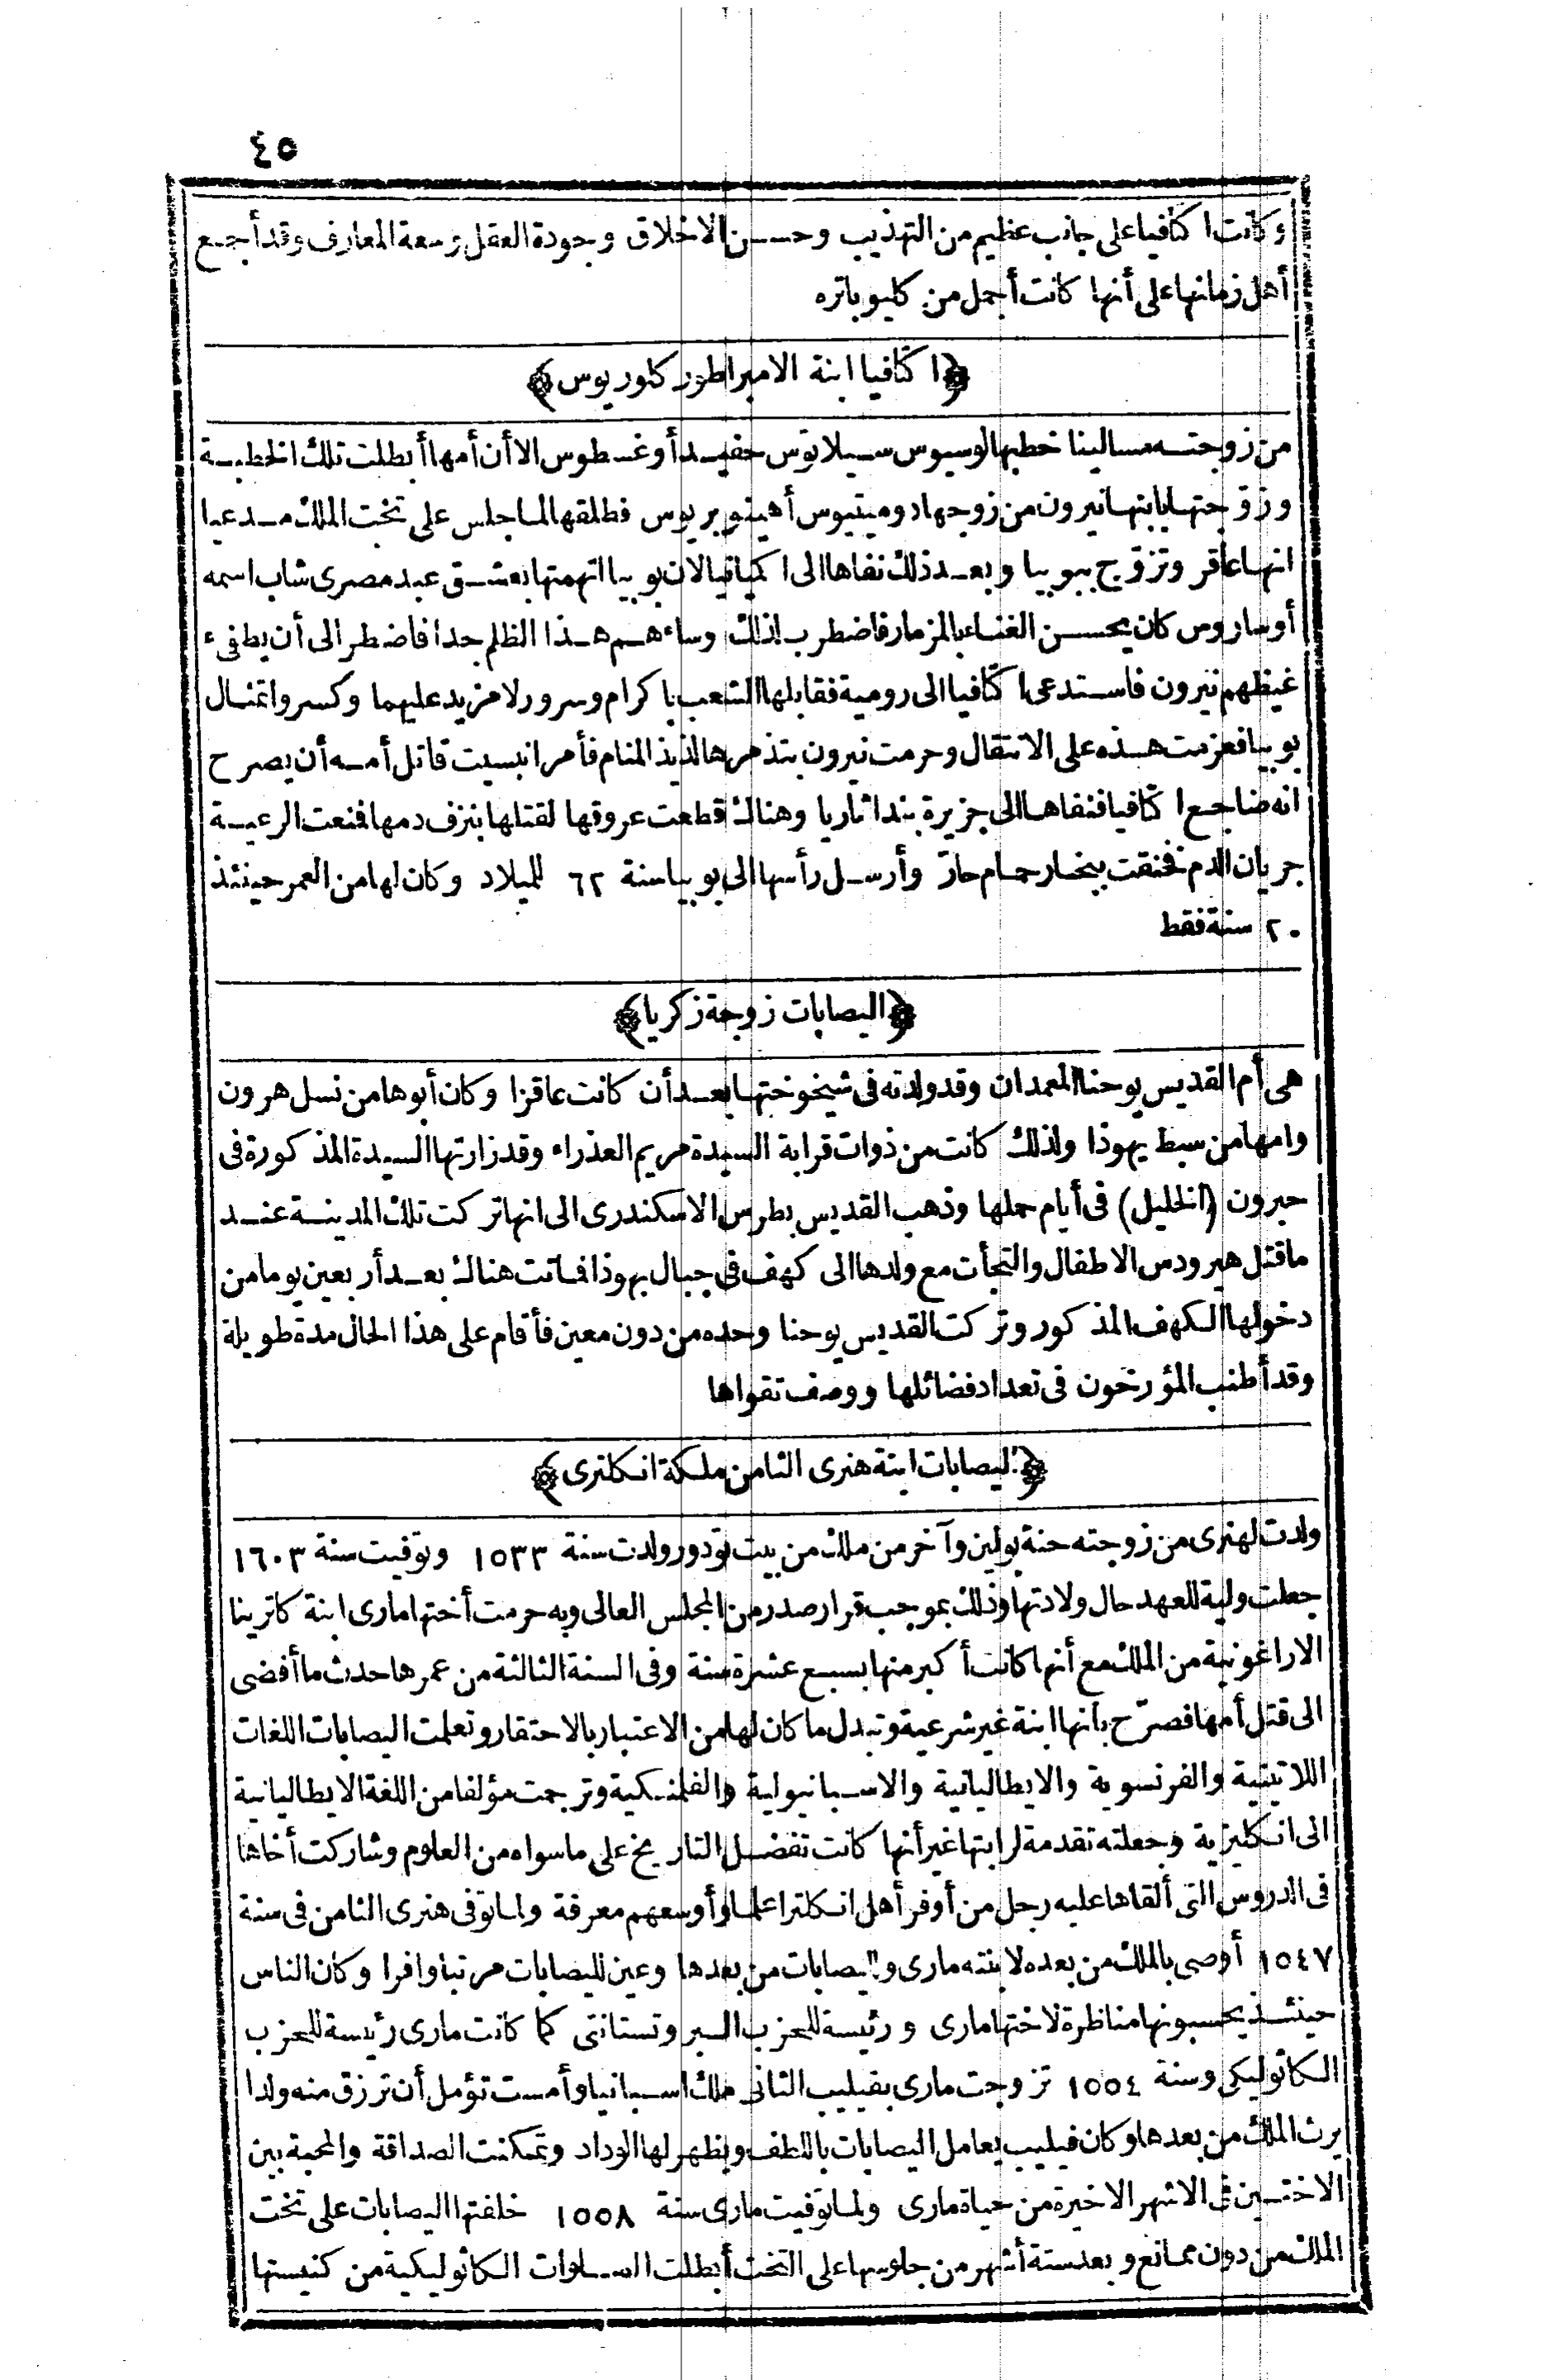 ٤٥
وكانت اكتافيا على جانب عظيم من التهذيب وحسن الاخلاق وجودة العقل وسعة المعارف وقد أجمع
أهل زمانها على أنها كانت أجمل من كليوباتره
﴿اكتافيا ابنة الامبراطور كلوديوس﴾
من زوجته مسالينا خطبها لوسيوس سيلانوس حفيد أوغسطوس الا أن أمها أبطلت تلك الخطبة
وزوّجتها بابنها نيرون من زوجها دوميتيوس أهينوبربوس فطلقها لما جلس على تخت الملك مدعيا
انها عاقر وتزوّج ببوبيا وبعد ذلك نفاها الى اكمبانيا لان بوبيا اتهمتها بعشق عبد مصرى شاب اسمه
أوساروس كان يحسن الغناء بالمزمار فاضطرب لذلك وساءهم هذا الظلم جدا فاضطر الى أن يطفىء
غيظهم نيرون فاستدعى اكتافيا الى رومية فقابلها الشعب باكرام وسرور لا مزيد عليهما وكسروا تمثال
بوبيا فعزمت هذه على الانتقال وحرمت نيرون بتذمرها لذيذ المنام فأمر انيسيت قاتل أمه أن يصرح
انه ضاجع اكتافيا فنفاها الى جزيرة بنداتاريا وهناك قطعت عروقها لقتلها بنزف دمها فمنعت الرعبة
جريان الدم فخنقت ببخار حمام حارّ وأرسل رأسها الى بوبيا سنة ٦٢ للميلاد وكان لها من العمر حينئذ
٢٠ سنة فقط
﴿اليصابات زوجة زكريا﴾
هى أم القديس يوحنا المعمدان وقد ولدته فى شيخوختها بعد أن كانت عاقرا وكان أبوها من نسل هرون
وامها من سبط يهوذا ولذلك كانت من ذوات قرابة السيدة مريم العذراء وقد زارتها السيدة المذكورة فى
حبرون (الخليل) فى أيام حملها وذهب القديس بطرس الاسكندرى الى انها تركت تلك المدينة عند
ما قتل هيرودس الاطفال والتجأت مع ولدها الى كهف فى جبال يهوذا فماتت هناك بعد أربعين يوما من
دخولها الكهف المذكور وتركت القديس يوحنا وحده من دون معين فأقام على هذا الحال مدة طويلة
وقد أطنب المؤرخون فى تعداد فضائلها ووصف تقواها
﴿اليصابات ابنة هنرى الثامن ملكة انكلترى﴾
ولدت لهنرى من زوجته حنة بولين وآخر من ملك من بيت تودور ولدت سنة ١٥٣٣ وتوفيت سنة ١٦٠٣
جعلت ولية للعهد حال ولادتها وذلك بموجب قرار صدر من المجلس العالى وبه حرمت أختها مارى ابنة كاترينا
الاراغونية من الملك مع أنها كانت أكبر منها بسبع عشرة سنة وفى السنة الثالثة من عمرها حدث ما أفضى
الى قتل أمها فصرّح بأنها ابنة غير شرعية وتبدل ما كان لها من الاعتبار بالاحتقار وتعلمت اليصابات اللغات
اللاتينية والفرنسوية والايطاليانية والاسبانيولية والفلمنكية وترجمت مؤلفا من اللغة الايطاليانية
الى انكليزية وجعلته تقدمة لرابتها غير أنها كانت تفضل التاريخ على ما سواه من العلوم وشاركت أخاها
فى الدروس التى ألقاها عليه رجل من أوفر أهل انكلترا علما وأوسعهم معرفة ولما توفى هنرى الثامن فى سنة
١٥٤٧ أوصى بالملك من بعده لابنته مارى واليصابات من بعدها وعين لليصابات مرتبا وافرا وكان الناس
حينئذ يحسبونها مناظرة لاختها مارى ورئيسة للحزب البروتستانتى كما كانت مارى رئيسة للحزب
الكاثوليكى وسنة ١٥٥٤ تزوجت مارى بفيليب الثانى ملك اسبانيا وأمست تؤمل أن ترزق منه ولدا
يرث الملك من بعدها وكان فيليب يعامل اليصابات باللطف ويظهر لها الوداد وتمكنت الصداقة والمحبة بين
الاختين فى الاشهر الاخيرة من حياة مارى ولما توفيت مارى سنة ١٥٥٨ خلفتها اليصابات على تخت
الملك من دون ممانع وبعد ستة أشهر من جلوسها على التخت أبطلت الصلوات الكاثوليكية من كنيستها